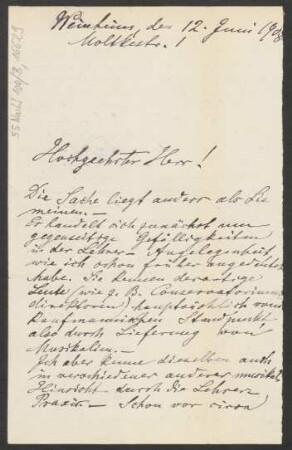 Weinheim, den 12. Juni 1908
Moltkestr. 1
55 Nachl 100/B,
Hochgeehrter Herr!
Die Sache liegt anders als Sie
meinen. —
Es handelt sich zunächst um
gegenseitige Gefälligkeiten
in der Lehrer - Angelegenheit,
wie ich schon früher angedeutet
habe. Sie kennen derartige
Leute (wie z. B. Conservatoriums
direktoren) hauptsächlich vom
kaufmännischen Standpunkt
also durch Lieferung von
Musikalien. —
Ich aber kenne dieselben auch
in verschiedener anderer musikal.
Hinsicht durch die Lehrer-
Praxis. — Schon vor circa